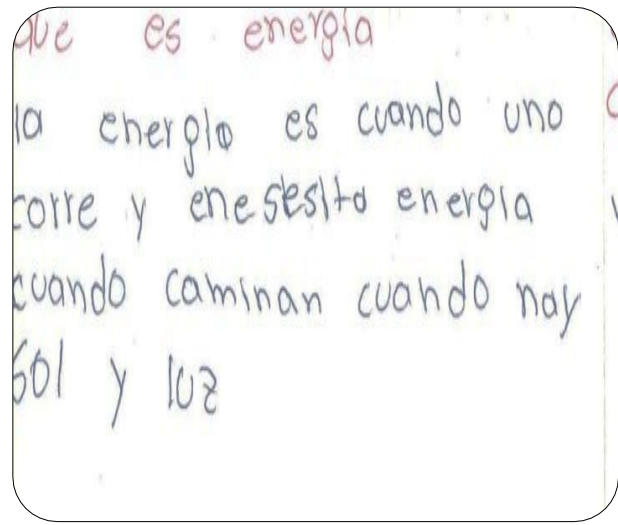 que es energía
la energía es cuando uno
corre y enesesita energía
cuando caminan cuando hay
sol y luz